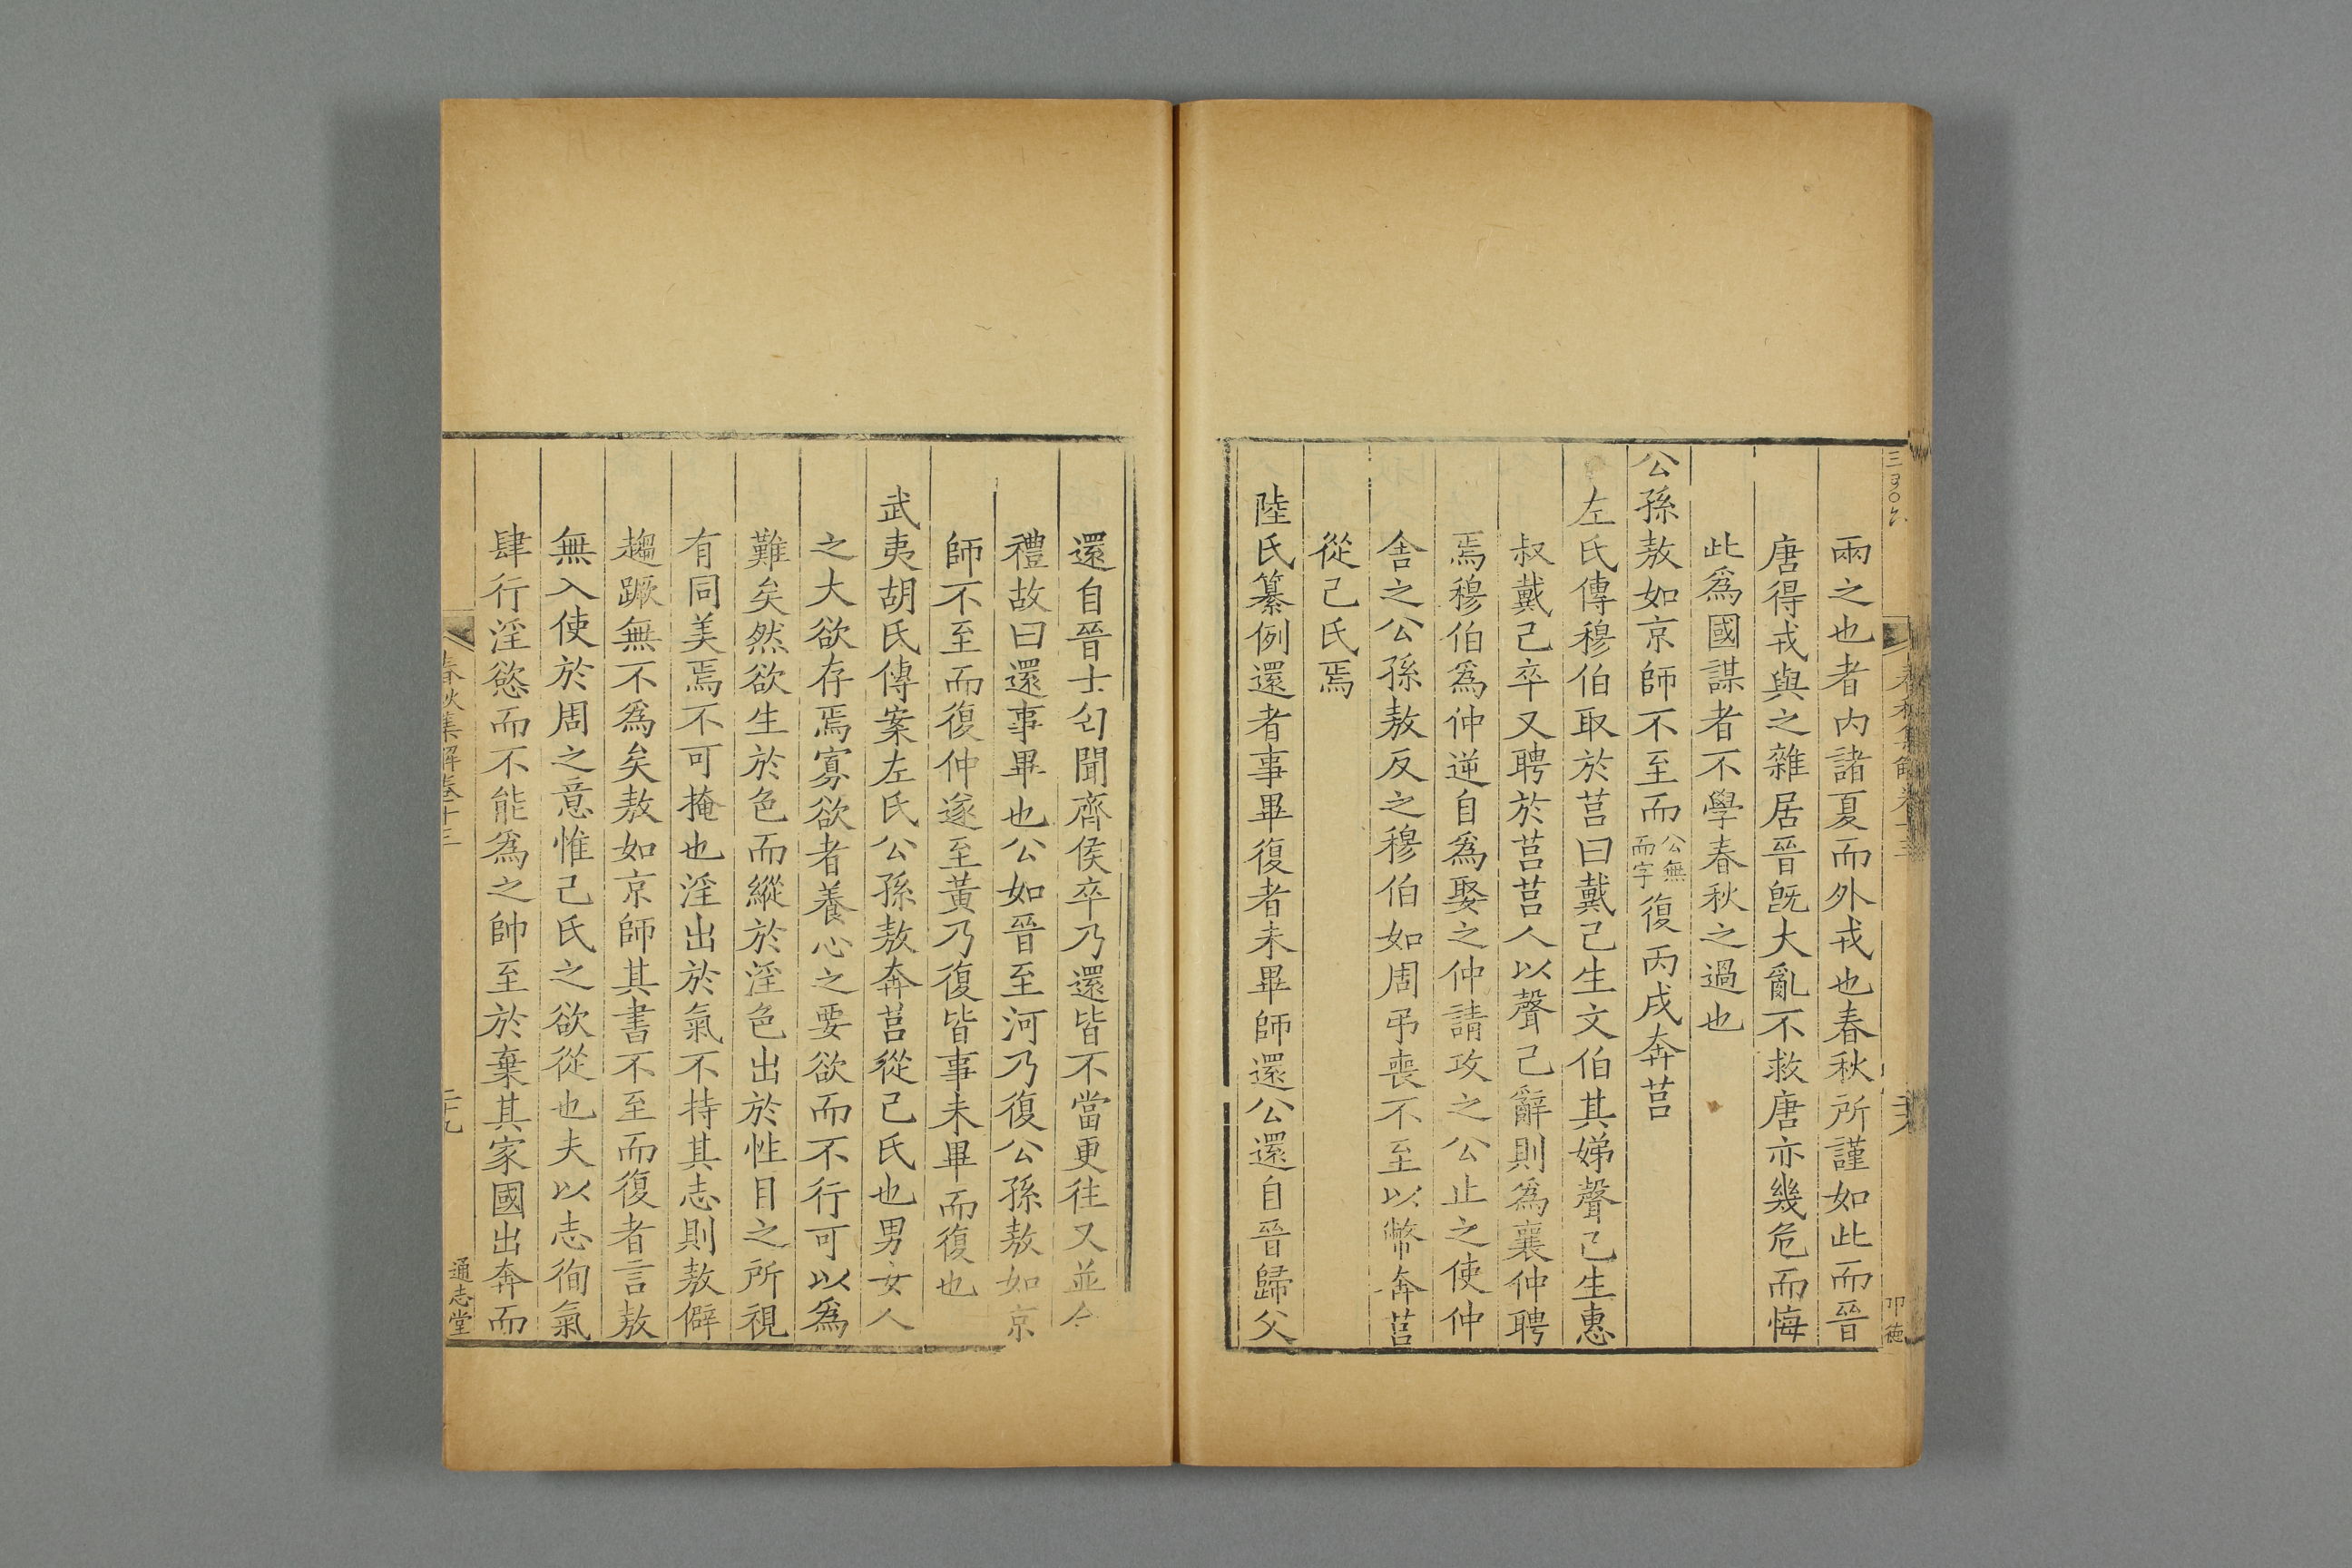 兩之也者内諸夏而外戎也春秋所謹如此而晉
唐得戎與之雜居晉旣大亂不救唐亦幾危而悔
此爲國謀者不學春秋之過也
公孫敖如京師不至而公無而字復丙戌奔莒
左氏傳穆伯取於莒曰戴己生文伯其娣聲己生惠
叔戴己卒又聘於莒莒人以聲己辭則爲襄仲聘
焉穆伯爲仲逆自爲娶之仲請攻之公止之使仲
舍之公孫敖反之穆伯如周弔喪不至以幣奔莒
從己氏焉
陸氏纂例還者事畢復者未畢師還公還自晉歸父
還自晉士匄聞齊侯卒乃還皆不當更往又並合
禮故曰還事畢也公如晉至河乃復公孫敖如京
師不至而復仲遂至黃乃復皆事未畢而復也
武夷胡氏傳案左氏公孫敖奔莒從己氏也男女人
之大欲存焉寡欲者養心之要欲而不行可以爲
難矣然欲生於色而縱於淫色出於性目之所視
有同美焉不可掩也淫出於氣不持其志則敖僻
趨蹶無不爲矣敖如京師其書不至而復者言敖
無入使於周之意惟己氏之欲從也夫以志徇氣
肆行淫慾而不能爲之帥至於棄其家國出奔而
春秋集解卷十三
二十九
通志堂